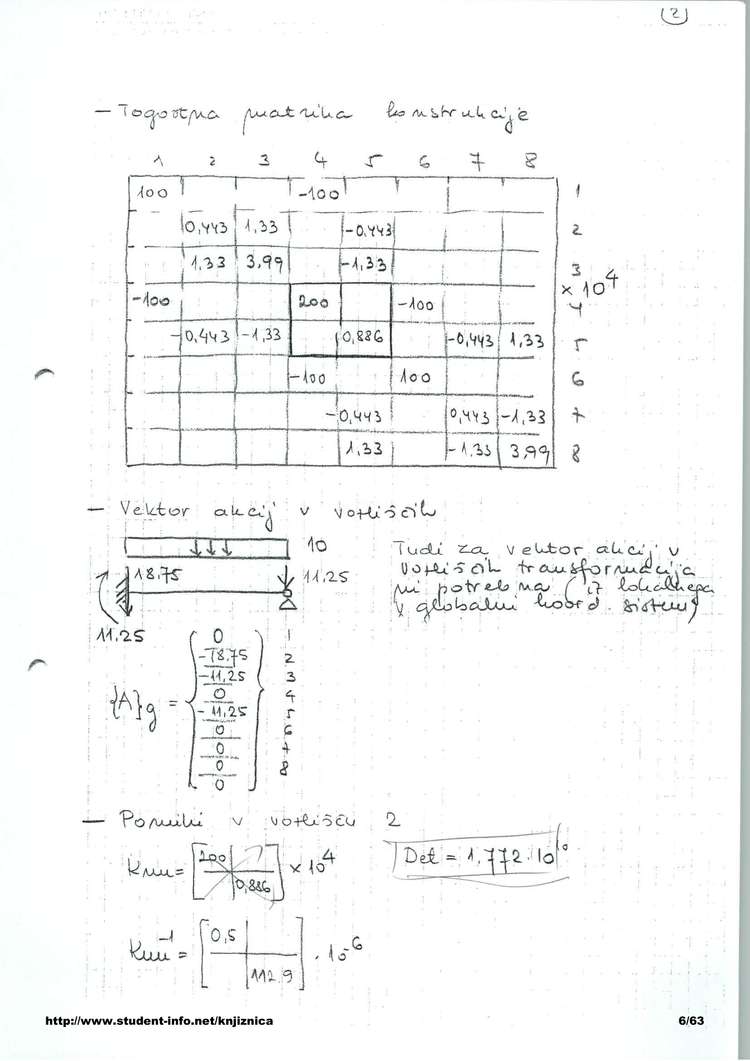 2
- Togostna matrika konstrukcije
1 2 3 4 5 6 7 8
100 -100 1
0,443 1,33 -0,443 2
1,33 3,99 -1,33 3
× 10^4
-100 200 -100 4
-0,443 -1,33 0,886 -0,443 1,33 5
-100 100 6
-0,443 0,443 -1,33 7
1,33 -1,33 3,99 8
- Vektor akcij v vozliščih
10
18.75 11,25
11.25
Tudi za vektor akcij v
vozliščih transformacija
ni potrebna (iz lokalnega
v globalni koord. sistem)
{A}g =
0 1
-18.75 2
-11,25 3
0 4
-11,25 5
0 6
0 7
0 8
0
- Pomiki v vozlišču 2
Kmm = [200 0,886] × 10^4
Det = 1,772·10^10
Kmm^-1 = [0,5 112.9] · 10^-6
http://www.student-info.net/knjiznica
6/63